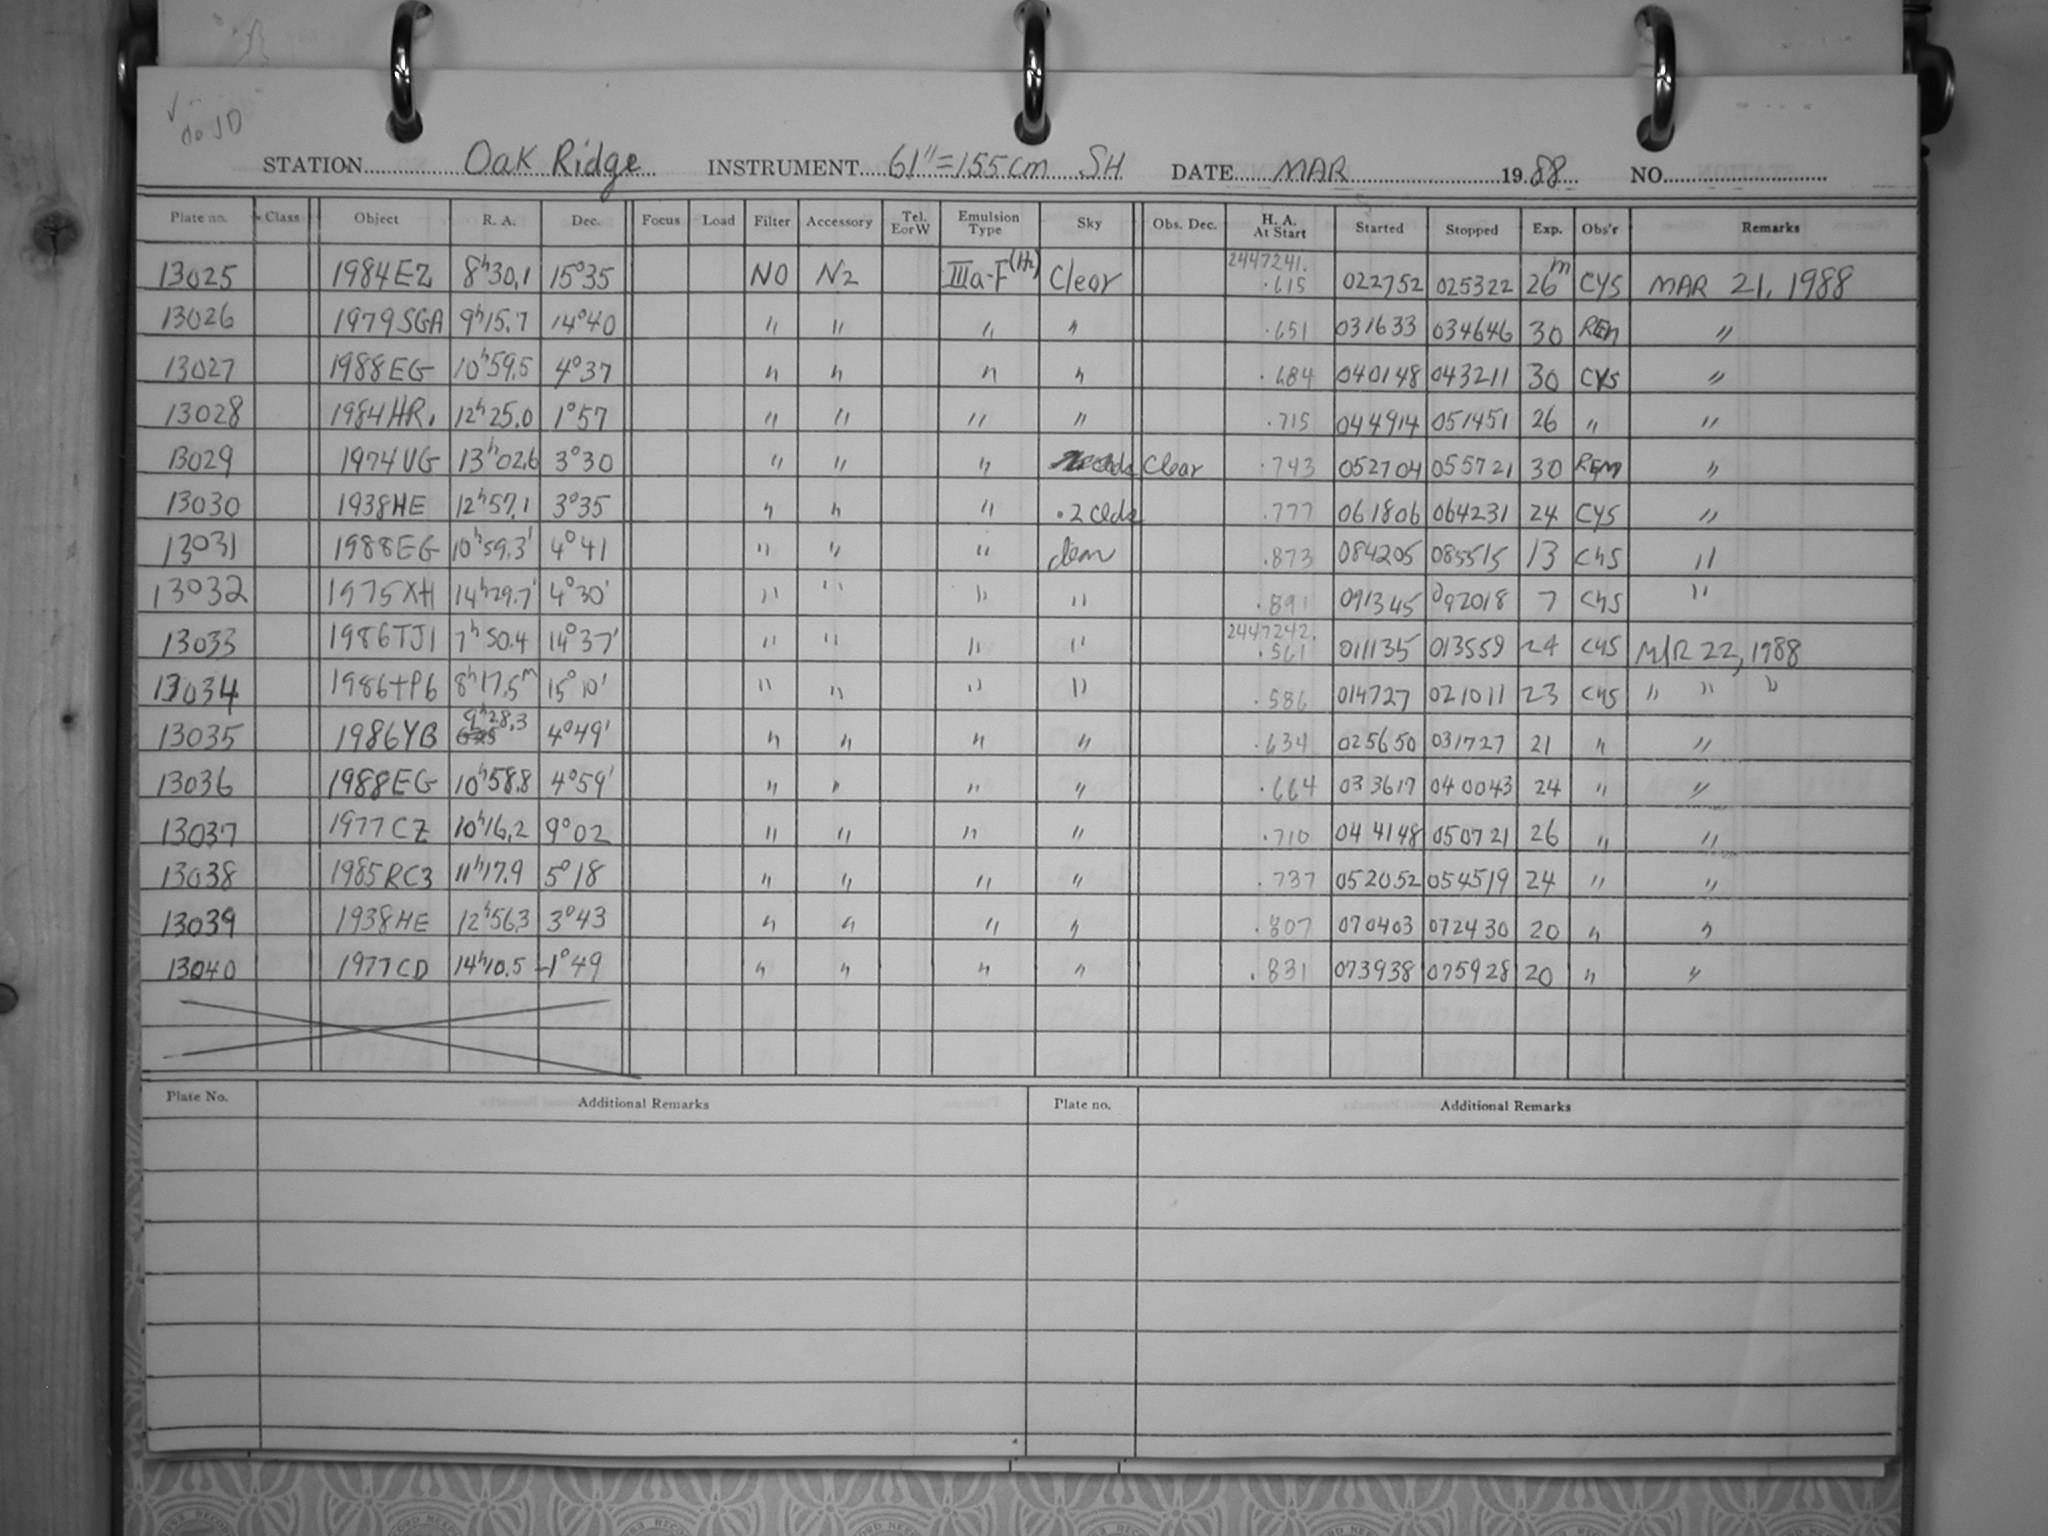 √
do JD
STATION Oak Ridge INSTRUMENT 61"=155cm SH DATE MAR 1988 NO.
Plate no. Class Object R. A. Dec. Focus Load Filter Accessory Tel. EorW Emulsion Type Sky Obs. Dec. H. A. At Start Started Stopped Exp. Obs'r Remarks
13025 1984EZ 8h30.1 15°35 NO N2 IIIa-F(H2) Clear 2447241. .615 022752 025322 26m CYS MAR 21, 1988
13026 1979SGA 9h15.7 14°40 " " " " .651 031633 034646 30 REM "
13027 1988EG 10h59.5 4°37 " " " " .684 040148 043211 30 CYS "
13028 1984HR1 12h25.0 1°57 " " " " .715 044914 051451 26 " "
13029 1974UG 13h02.6 3°30 " " " Clear .743 052704 055721 30 REM "
13030 1938HE 12h57.1 3°35 " " " .2 clds .777 061806 064231 24 CYS "
13031 1988EG 10h59.3' 4°41 " " " clear .873 084205 085515 13 CYS "
13032 1975XH 14h29.7' 4°30' " " " " .891 091345 092018 7 CYS "
13033 1986TJ1 7h50.4 14°37' " " " " 2447242. .561 011135 013559 24 CYS MAR 22, 1988
13034 1986TP6 8h17.5m 15°10' " " " " .586 014727 021011 23 CYS " " "
13035 1986YB 9h28.3 4°49' " " " " .634 025650 031727 21 " "
13036 1988EG 10h58.8 4°59' " " " " .664 033617 040043 24 " "
13037 1977CZ 10h16.2 9°02 " " " " .710 044148 050721 26 " "
13038 1985RC3 11h17.9 5°18 " " " " .737 052052 054519 24 " "
13039 1938HE 12h56.3 3°43 " " " " .807 070403 072430 20 " "
13040 1977CD 14h10.5 -1°49 " " " " .831 073938 075928 20 " "
Plate No. Additional Remarks Plate no. Additional Remarks